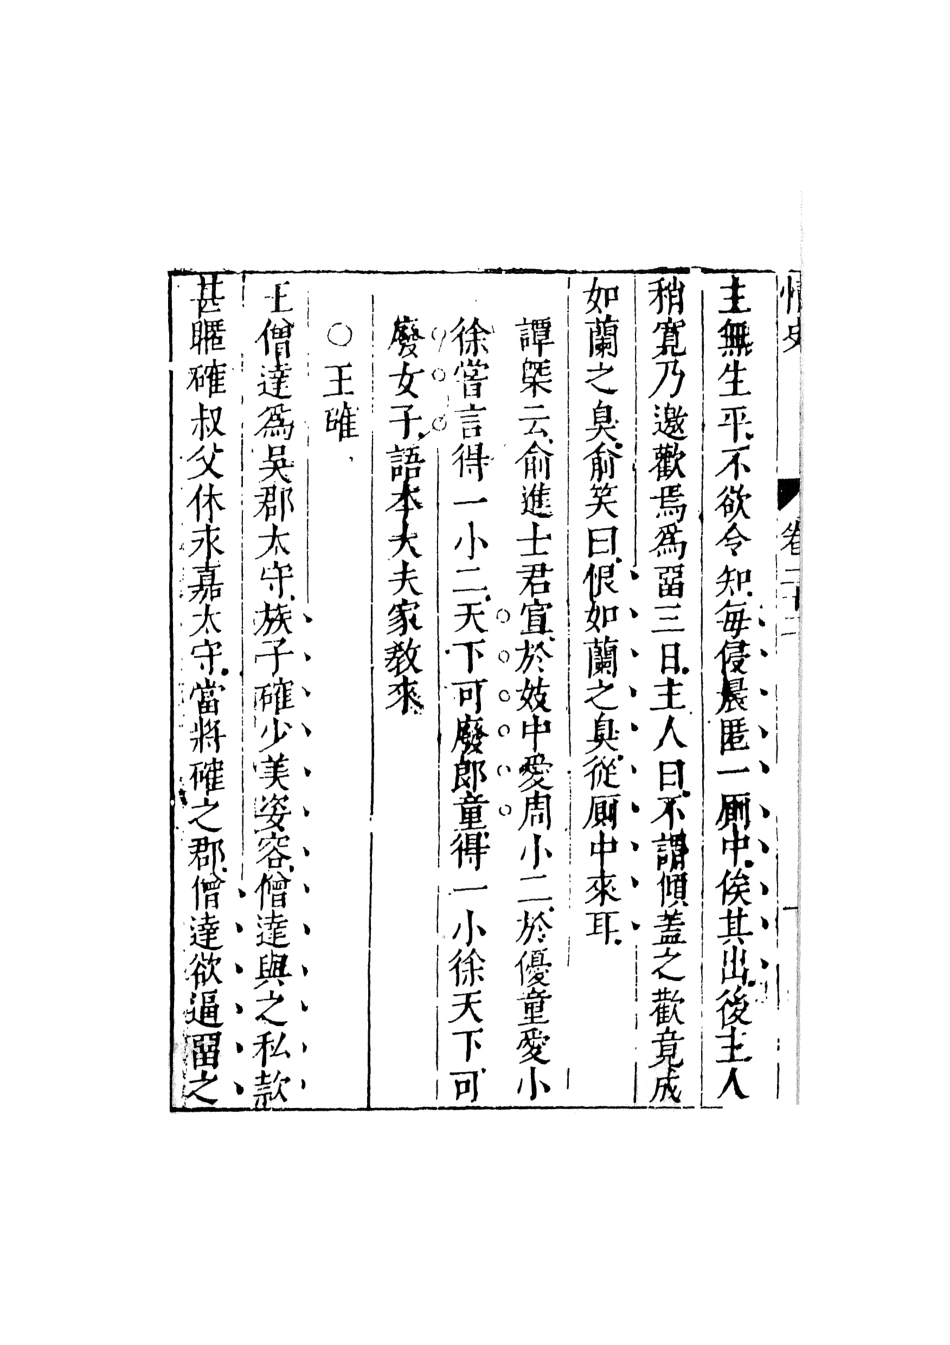 情史 卷二十二
主無生平不欲令知每侵晨匿一厠中俟其出後主人
稍寬乃邀歡焉爲畱三日主人曰不謂傾蓋之歡竟成
如蘭之臭俞笑曰恨如蘭之臭從厠中來耳
譚槩云俞進士君宣於妓中愛周小二於優童愛小
徐嘗言得一小二天下可廢郎童得一小徐天下可
廢女子語本大夫家敎來
○王確
王僧達爲吳郡太守族子確少美姿容僧達與之私款
甚暱確叔父休永嘉太守當將確之郡僧達欲逼畱之